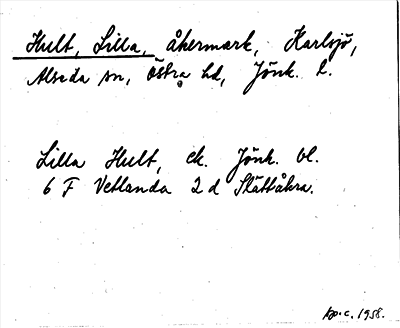 Hult, Lilla, åkermark, Karlsjö,
Alseda sn, Östra hd, Jönk. l.
Lilla Hult, ek. Jönk. bl.
6 F Vetlanda 2 d Slättåkra.
1958.